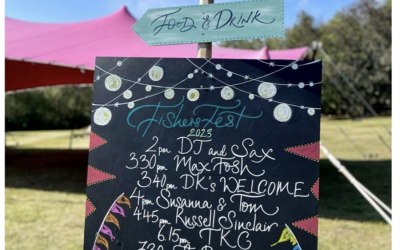 Food & Drink
FishersFest
2023
2pm DJ and Sax
3.30pm Max Fosh
3.40pm DK's WELCOME
4pm Susanna & Tom
4.45pm Russell Sinclair
6.15pm TKG